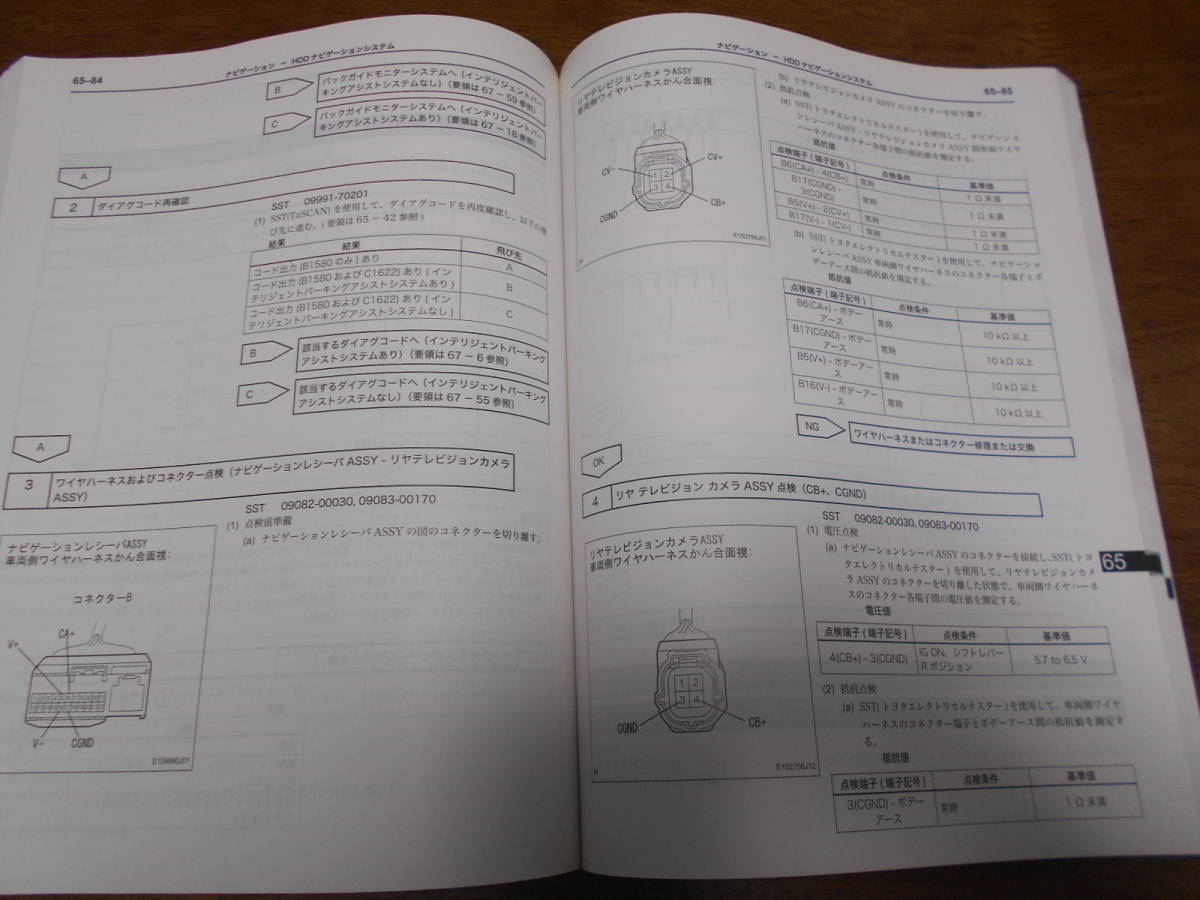 65–84
ナビゲーション － HDDナビゲーションシステム
B
バックガイドモニターシステムへ（インテリジェントパー
キングアシストシステムなし）（要領は 67 － 59 参照）
C
バックガイドモニターシステムへ（インテリジェントパー
キングアシストシステムあり）（要領は 67 － 18 参照）
A
2
ダイアグコード再確認
SST 09991-70201
(1) SST(TaSCAN) を使用して、ダイアグコードを再度確認し、以下の飛
び先に進む。( 要領は 65 － 42 参照 )
結果
結果
飛び先
コード出力 (B1580 のみ ) あり
A
コード出力 (B1580 および C1622) あり ( イン
テリジェントパーキングアシストシステムあり )
B
コード出力 (B1580 および C1622) あり ( イン
テリジェントパーキングアシストシステムなし )
C
B
該当するダイアグコードへ（インテリジェントパーキング
アシストシステムあり）（要領は 67 － 6 参照）
C
該当するダイアグコードへ（インテリジェントパーキング
アシストシステムなし）（要領は 67 － 55 参照）
A
3
ワイヤハーネスおよびコネクター点検（ナビゲーションレシーバ ASSY - リヤテレビジョンカメラ
ASSY）
SST 09082-00030, 09083-00170
(1) 点検前準備
(a) ナビゲーションレシーバ ASSY の図のコネクターを切り離す。
ナビゲーションレシーバASSY
車両側ワイヤハーネスかん合面視:
コネクターB
V+
CA+
V−
CGND
E159990J01
ナビゲーション － HDDナビゲーションシステム
65–85
リヤテレビジョンカメラASSY
車両側ワイヤハーネスかん合面視:
CV−
CV+
1 2
3 4
CGND
CB+
E152756J01
H
(b) リヤテレビジョンカメラ ASSY のコネクターを切り離す。
(2) 抵抗点検
(a) SST( トヨタエレクトリカルテスター ) を使用して、ナビゲーショ
ンレシーバ ASSY - リヤテレビジョンカメラ ASSY 間車両ワイヤ
ハーネスのコネクター各端子間の抵抗値を測定する。
抵抗値
点検端子 ( 端子記号 )
点検条件
基準値
B6(CA+) - 4(CB+)
常時
1 Ω 未満
B17(CGND) -
3(CGND)
常時
1 Ω 未満
B5(V+) - 2(CV+)
常時
1 Ω 未満
B17(V-) - 1(CV-)
常時
1 Ω 未満
(b) SST( トヨタエレクトリカルテスター ) を使用して、ナビゲーショ
ンレシーバ ASSY 車両側ワイヤハーネスのコネクター各端子とボ
デーアース間の抵抗値を測定する。
抵抗値
点検端子 ( 端子記号 )
点検条件
基準値
B6(CA+) - ボデー
アース
常時
10 kΩ 以上
B17(CGND) - ボデー
アース
常時
10 kΩ 以上
B5(V+) - ボデーアー
ス
常時
10 kΩ 以上
B16(V-) - ボデーアー
ス
常時
10 kΩ 以上
NG
ワイヤハーネスまたはコネクター修理または交換
OK
4
リヤ テレビジョン カメラ ASSY 点検（CB+、CGND）
SST 09082-00030, 09083-00170
(1) 電圧点検
(a) ナビゲーションレシーバ ASSY のコネクターを接続し、SST( トヨ
タエレクトリカルテスター ) を使用して、リヤテレビジョンカメ
ラ ASSY のコネクターを切り離した状態で、車両側ワイヤハーネ
スのコネクター各端子間の電圧値を測定する。
電圧値
点検端子 ( 端子記号 )
点検条件
基準値
4(CB+) - 3(CGND)
IG ON、シフトレバー
R ポジション
5.7 to 6.5 V
(2) 抵抗点検
(a) SST( トヨタエレクトリカルテスター ) を使用して、車両側ワイヤ
ハーネスのコネクター端子とボデーアース間の抵抗値を測定す
る。
抵抗値
点検端子 ( 端子記号 )
点検条件
基準値
3(CGND) - ボデー
アース
常時
1 Ω 未満
リヤテレビジョンカメラASSY
車両側ワイヤハーネスかん合面視:
1 2
3 4
CGND
CB+
H
E152756J12
65